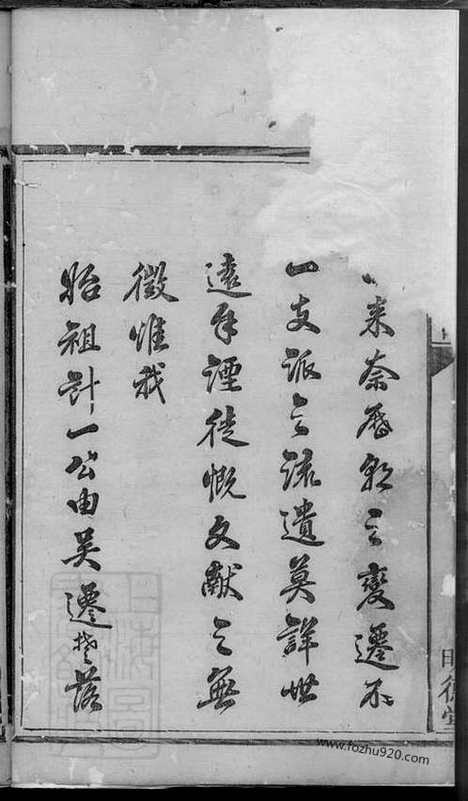 来奈歷朝之變遷不
一支派之流遺莫詳世
遠年湮徒慨文獻之無
徵惟我
始祖計一公由吴遷楚落
德堂
www.fozhu920.com